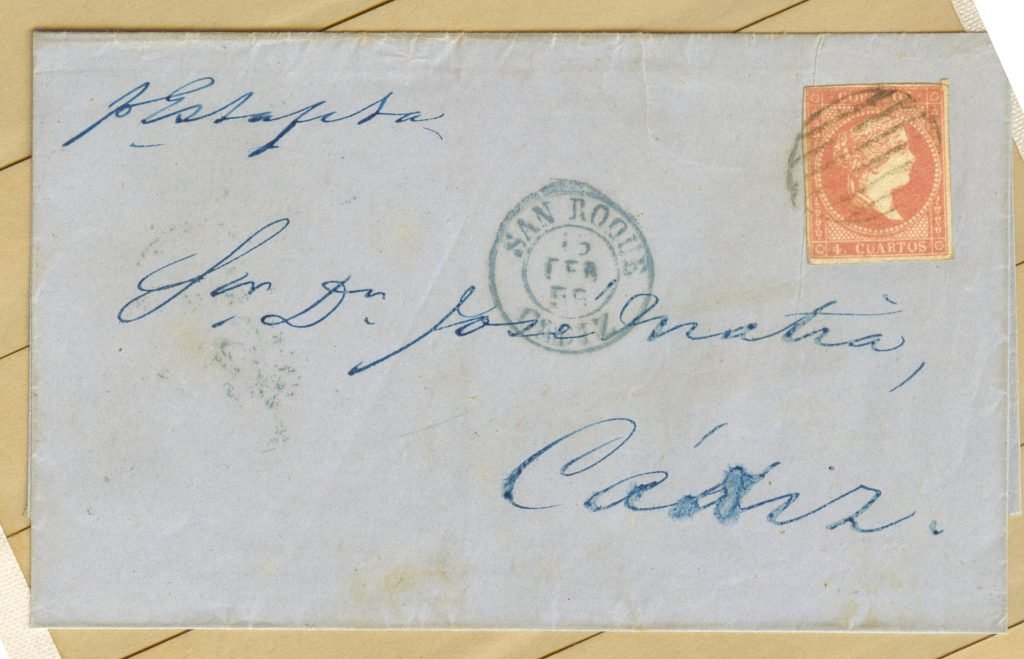 p. Estafeta
SAN ROQUE
FEB
CADIZ
4. CUARTOS
Sor. Dn. José Matia,
Cádiz.